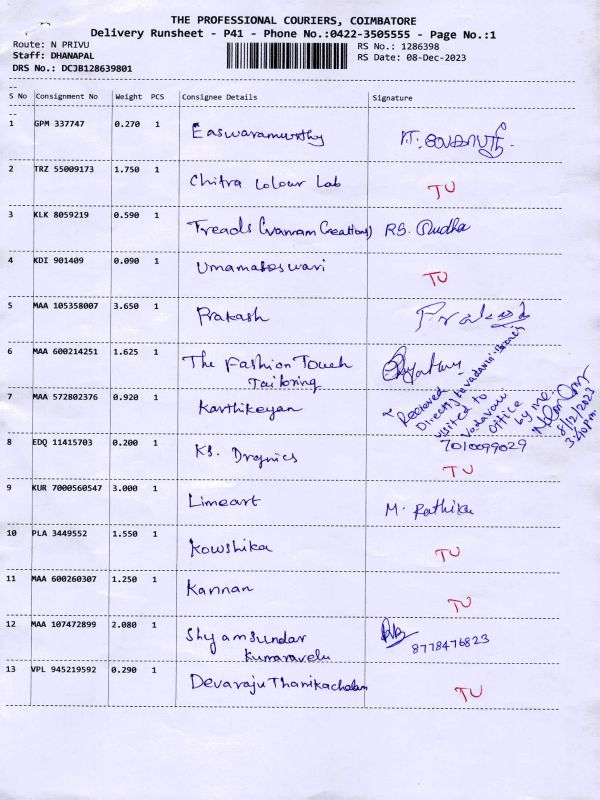 THE PROFESSIONAL COURIERS, COIMBATORE
Delivery Runsheet - P41 - Phone No.:0422-3505555 - Page No.:1
Route: N PRIVU
RS No.: 1286398
Staff: DHANAPAL
RS Date: 08-Dec-2023
DRS No.: DCJB128639801
--
S No Consignment No Weight PCS Consignee Details Signature
--
1 GPM 337747 0.270 1 Easwaramurthy
2 TRZ 55009173 1.750 1 Chitra Colour Lab TU
3 KLK 8059219 0.590 1 Treads (Vanam Creations) RS. Sudha
4 KDI 901409 0.090 1 Umamaheswari TU
5 MAA 105358007 3.650 1 Prakash Prakash
6 MAA 600214251 1.625 1 The Fashion Touch
Tailoring
7 MAA 572802376 0.920 1 Karthikeyan
Recieved
Directly to vadavalli Branch
visited to
Vadavalli
Office
by me.
8/12/2023
3:40 p.m.
7010099029
8 EDQ 11415703 0.200 1 KS. TU
9 KUR 7000560547 3.000 1 Limeart M. Rathika
10 PLA 3449552 1.550 1 Kowshika TU
11 MAA 600260307 1.250 1 Kannan TU
12 MAA 107472899 2.080 1 Shyamsundar
Kumaravelu
8778476823
13 VPL 945219592 0.290 1 Devaraju Thanikachalam TU